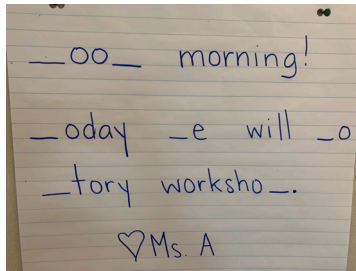 _oo_ morning!
_oday _e will _o
_tory worksho_.
♡Ms. A